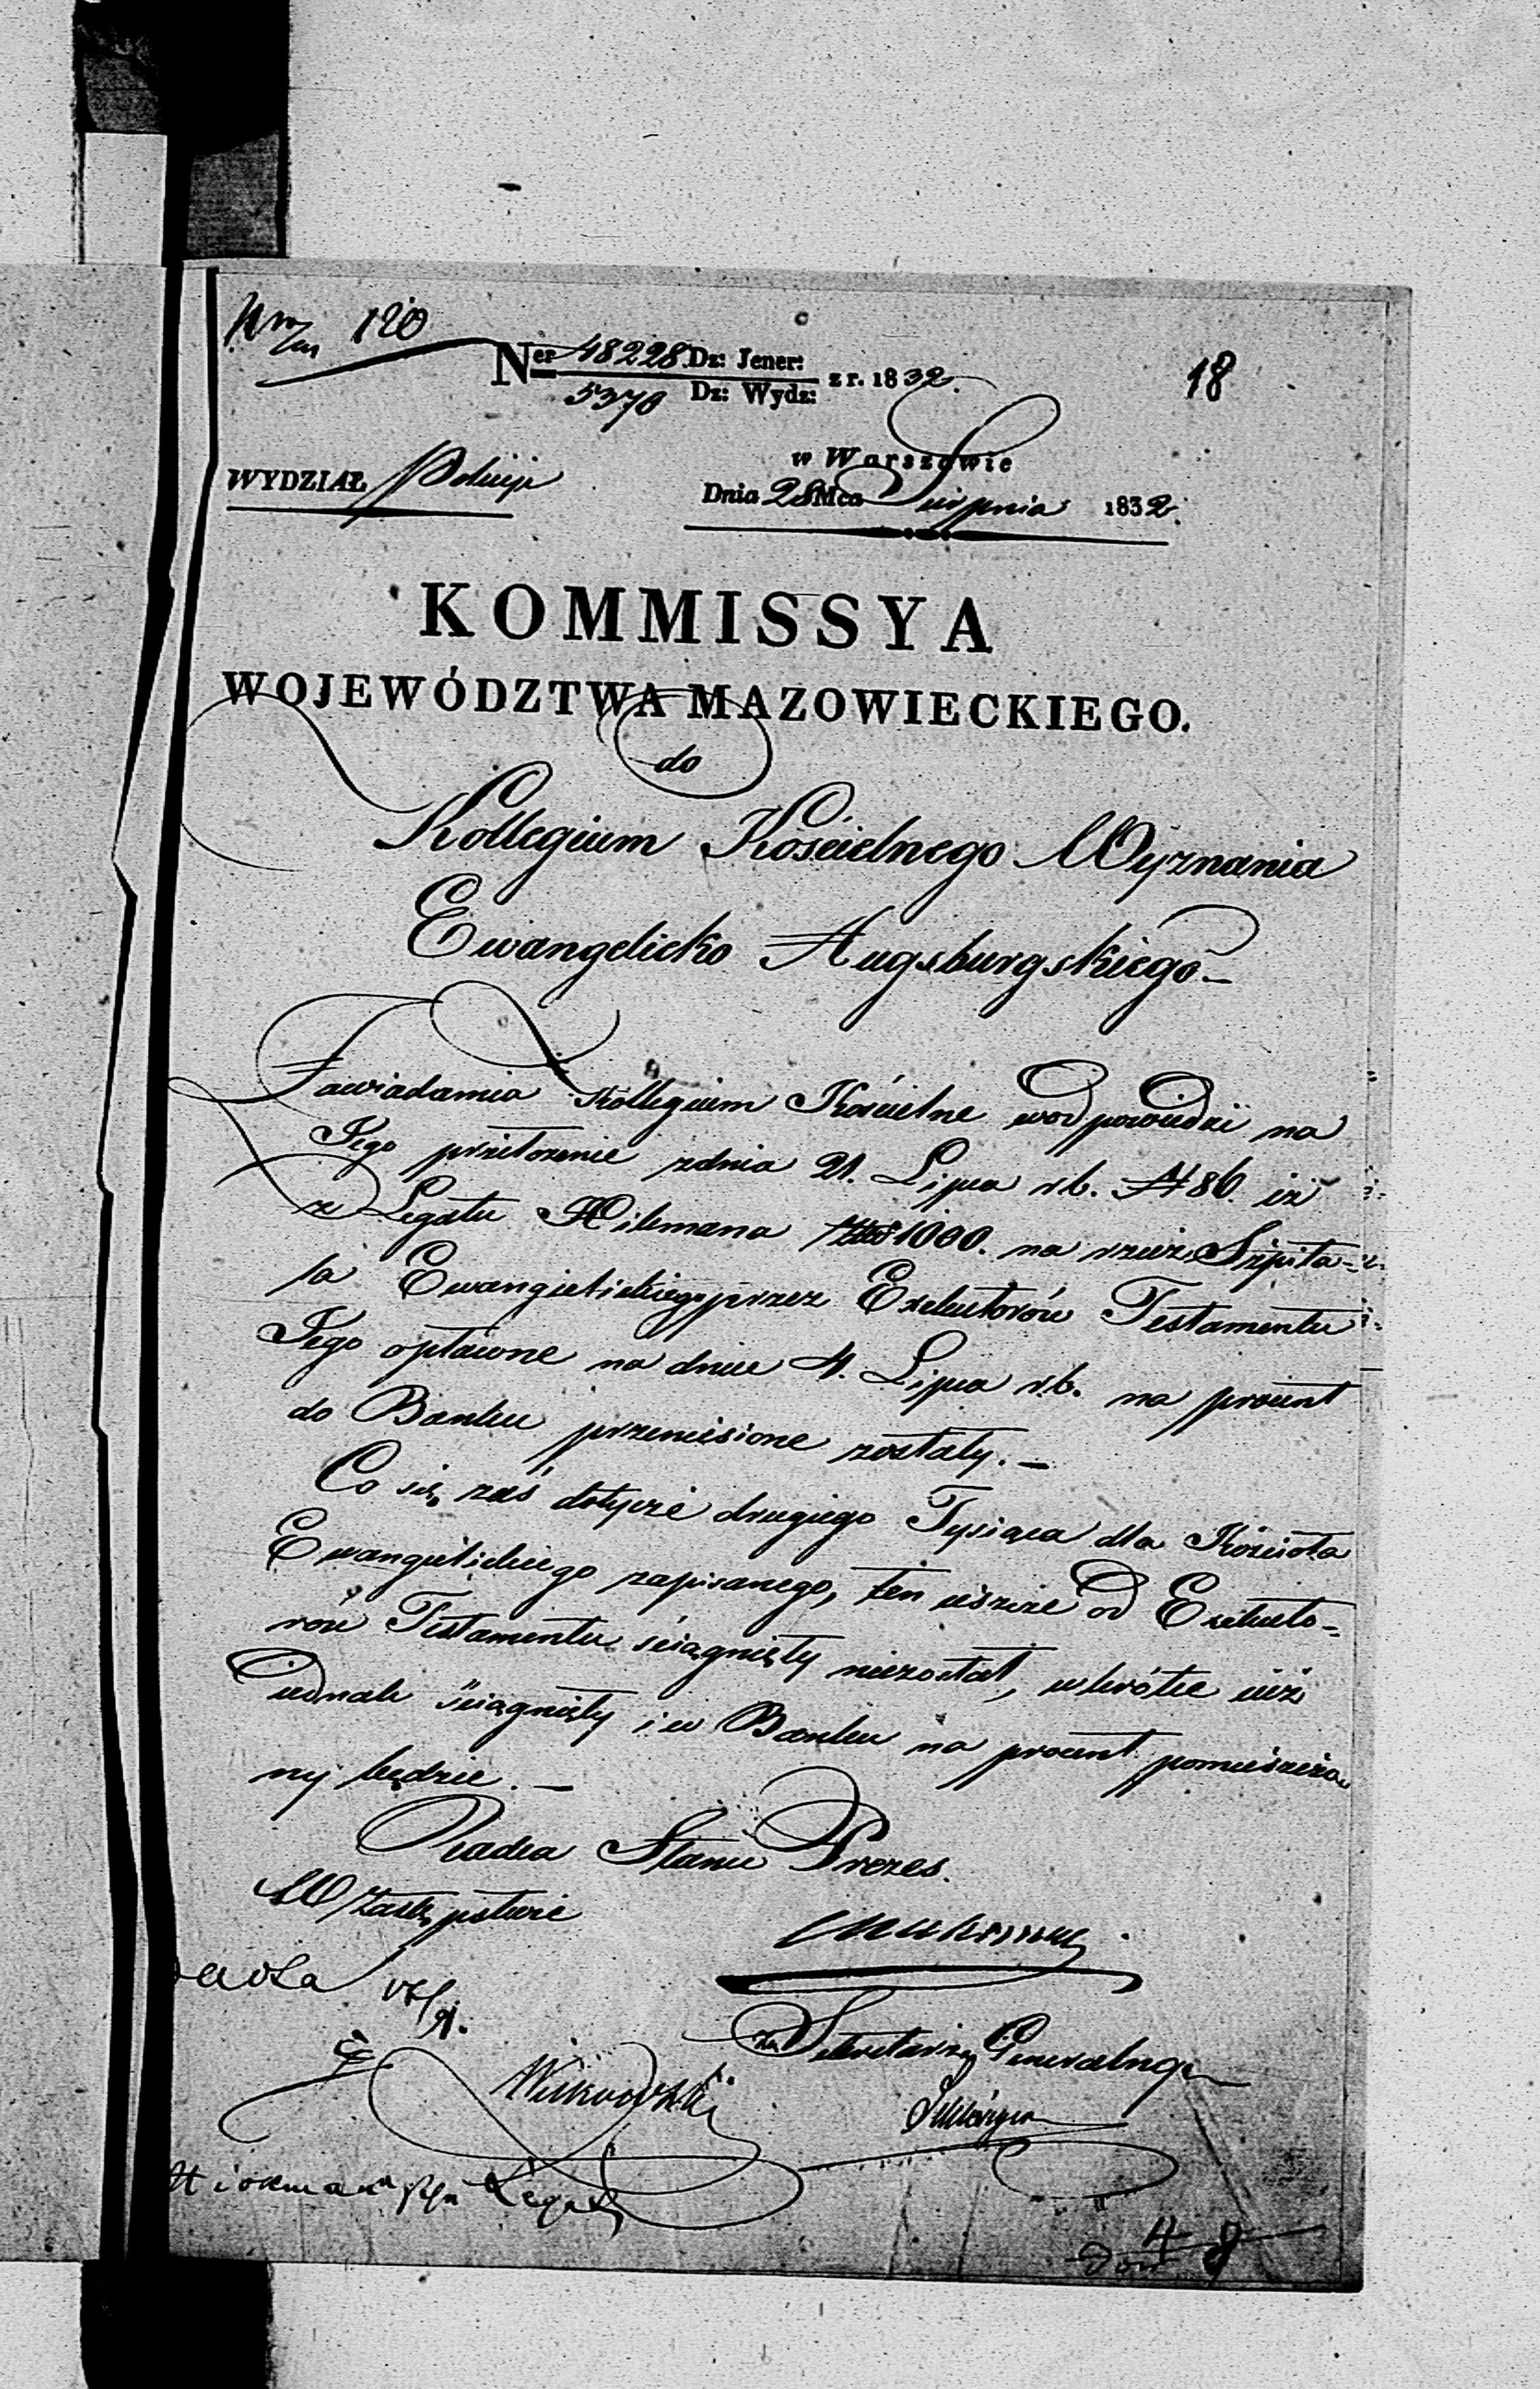 120
18
Ner 48228 Dz: Jener:
5370 Dz: Wydz: z r. 1832.
w Warszawie
WYDZIAŁ Policyi
Dnia 28 Mca Sierpnia 1832.
KOMMISSYA
WOJEWÓDZTWA MAZOWIECKIEGO.
do
Kollegium Kościelnego Wyznania
Ewangelicko Augsburgskiego –
Zawiadamia Kollegium Kościelne wodpowiedzi na
Jego przełożenie zdnia 21. Lipca r.b. N 86. iż
z Legatu Hilkmana 1000. na rzecz Szpita-
la Ewangielickiego przez Exekutorów Testamentu
Jego opłacone na dniu 4. Lipca r.b. na procent
do Banku przeniesione zostały. –
Co się zaś dotycze drugiego Tysiąca dla Kościoła
Ewangielickiego zapisanego, ten ieszcze od Exekuto-
rów Testamentu ściągnięty niezostał, wkrótce iuż
iednak ściągnięty i w Banku na procent pomieszczo-
ny będzie. –
Radca Stanu Prezes.
W Zastępstwie
Za Sekretarza Generalnego
4
8